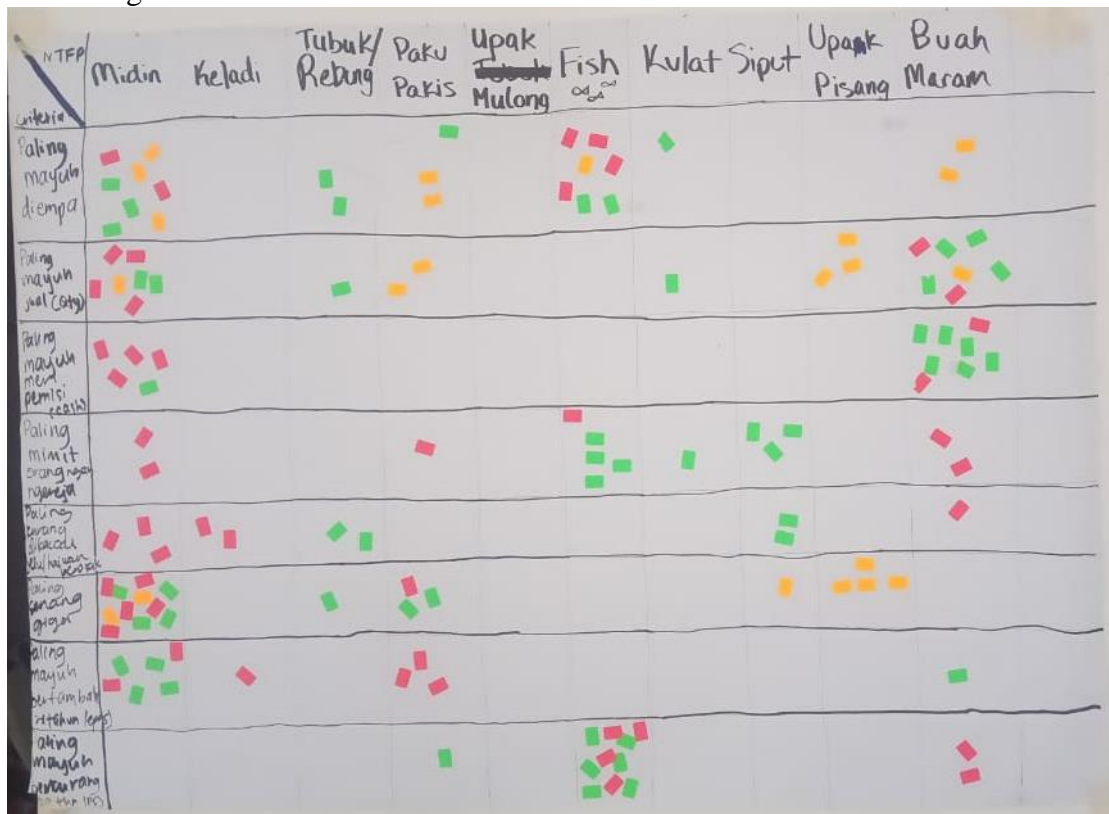 NTFP
criteria
Midin
Keladi
Tubuk/
Rebung
Paku
Pakis
Upak
Mulong
Fish
Kulat
Siput
Upank
Pisang
Buah
Maram
Paling
mayuh
diempa
Paling
mayuh
jual (qty)
Paling
mayuh
meri
pemisi
(cash)
Paling
mimit
orang
Paling
kurang
Paling
senang
gigar
Paling
mayuh
bertambah
Paling
mayuh
berkurang